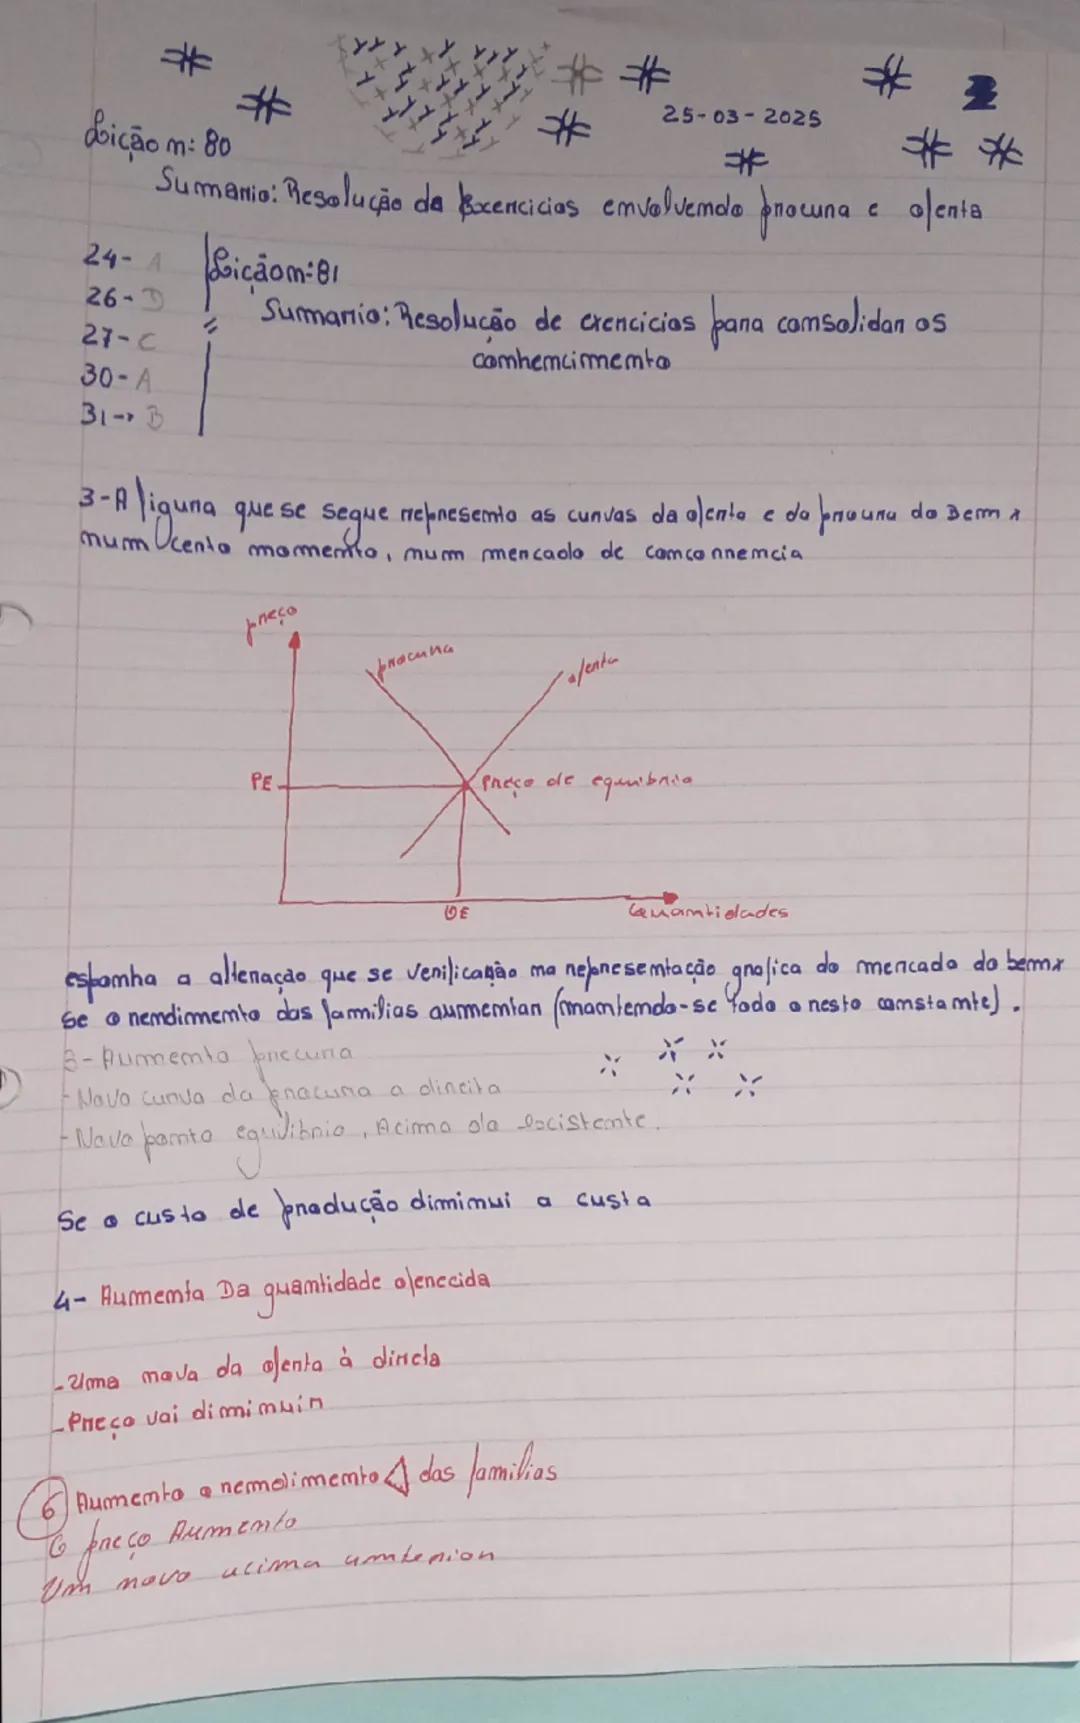 25-03-2025
Lição n: 80
Sumario: Resolução de Exercicios envolvendo procura e oferta
24- A
26- D
27- C
30- A
31-> B
Lição n: 81
Sumario: Resolução de exercicios para consolidar os
conhecimento
3-A figura que se segue representa as curvas da oferta e da procura do Bem x
num certo momento, num mercado de concorrencia
preço
procura
oferta
PE
Preço de equibrio
QE
Quantidades
esponha a alteração que se verificarão na representação grafica do mercado do bem x
se o rendimento das familias aumentar (mantendo-se todo o resto constante).
3- Aumento precura
- Nova curva da procura a direita
- Novo ponto equilibrio, Acima do existente.
Se o custo de produção diminui a custa
4- Aumenta Da quantidade oferecida
- Uma nova da oferta à direta
- Preço vai diminuir
6 Aumento o rendimento das familias
O preço Aumento
Um novo acima anterior